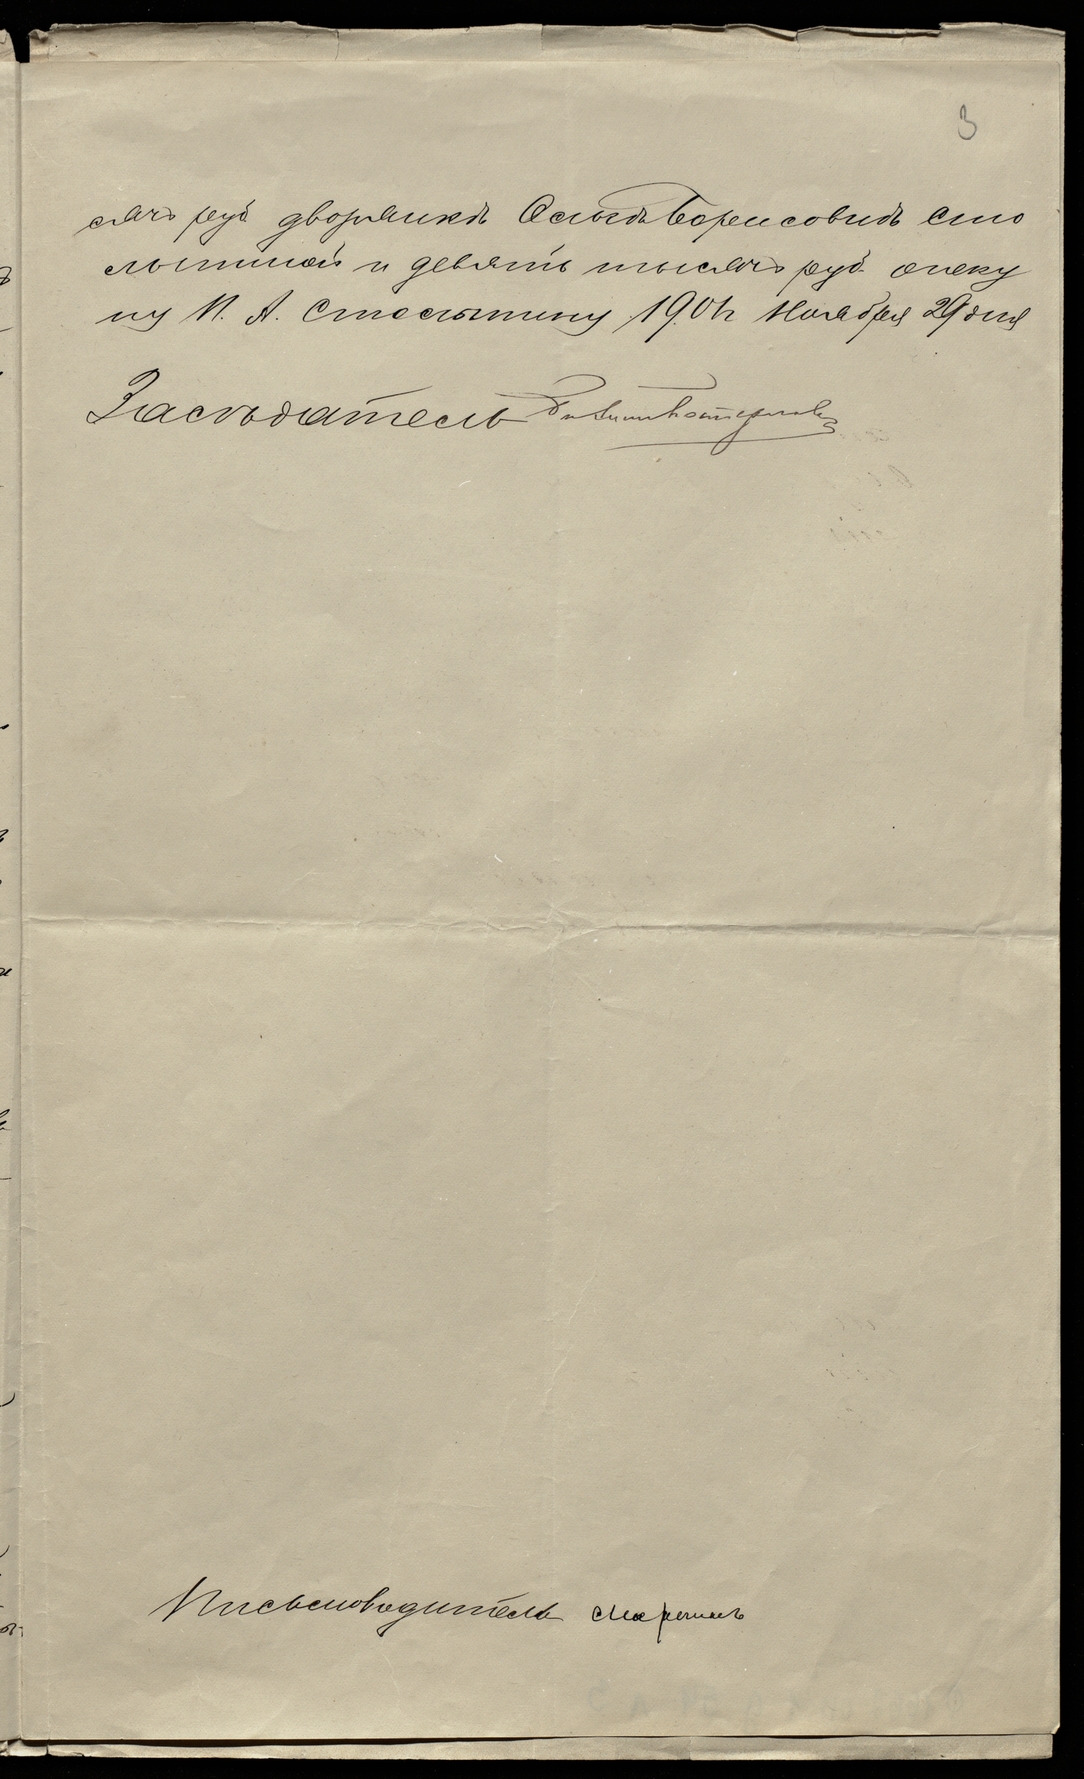 3
сячъ руб дворянкѣ Ольгѣ Борисовнѣ Сто
лыпиной и девять тысячъ руб. опеку
ну П. А. Столыпину 1904 Ноября 29 дня
Засѣдатель
Письмоводитель